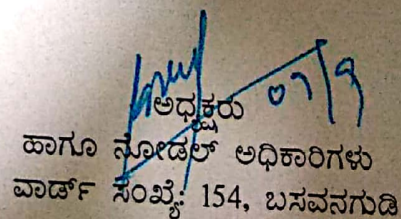 ಅಧ್ಯಕ್ಷರು
ಹಾಗೂ ನೋಡಲ್ ಅಧಿಕಾರಿಗಳು
ವಾರ್ಡ್ ಸಂಖ್ಯೆ: 154, ಬಸವನಗುಡಿ